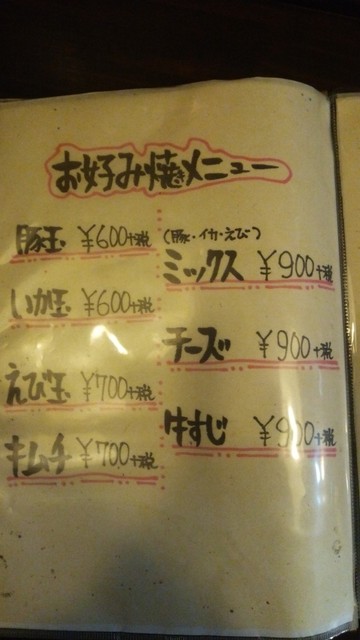 お好み焼きメニュー
豚玉 ¥600+税
いか玉 ¥600+税
えび玉 ¥700+税
キムチ ¥700+税
(豚・イカ・えび)
ミックス ¥900+税
チーズ ¥900+税
牛すじ ¥900+税